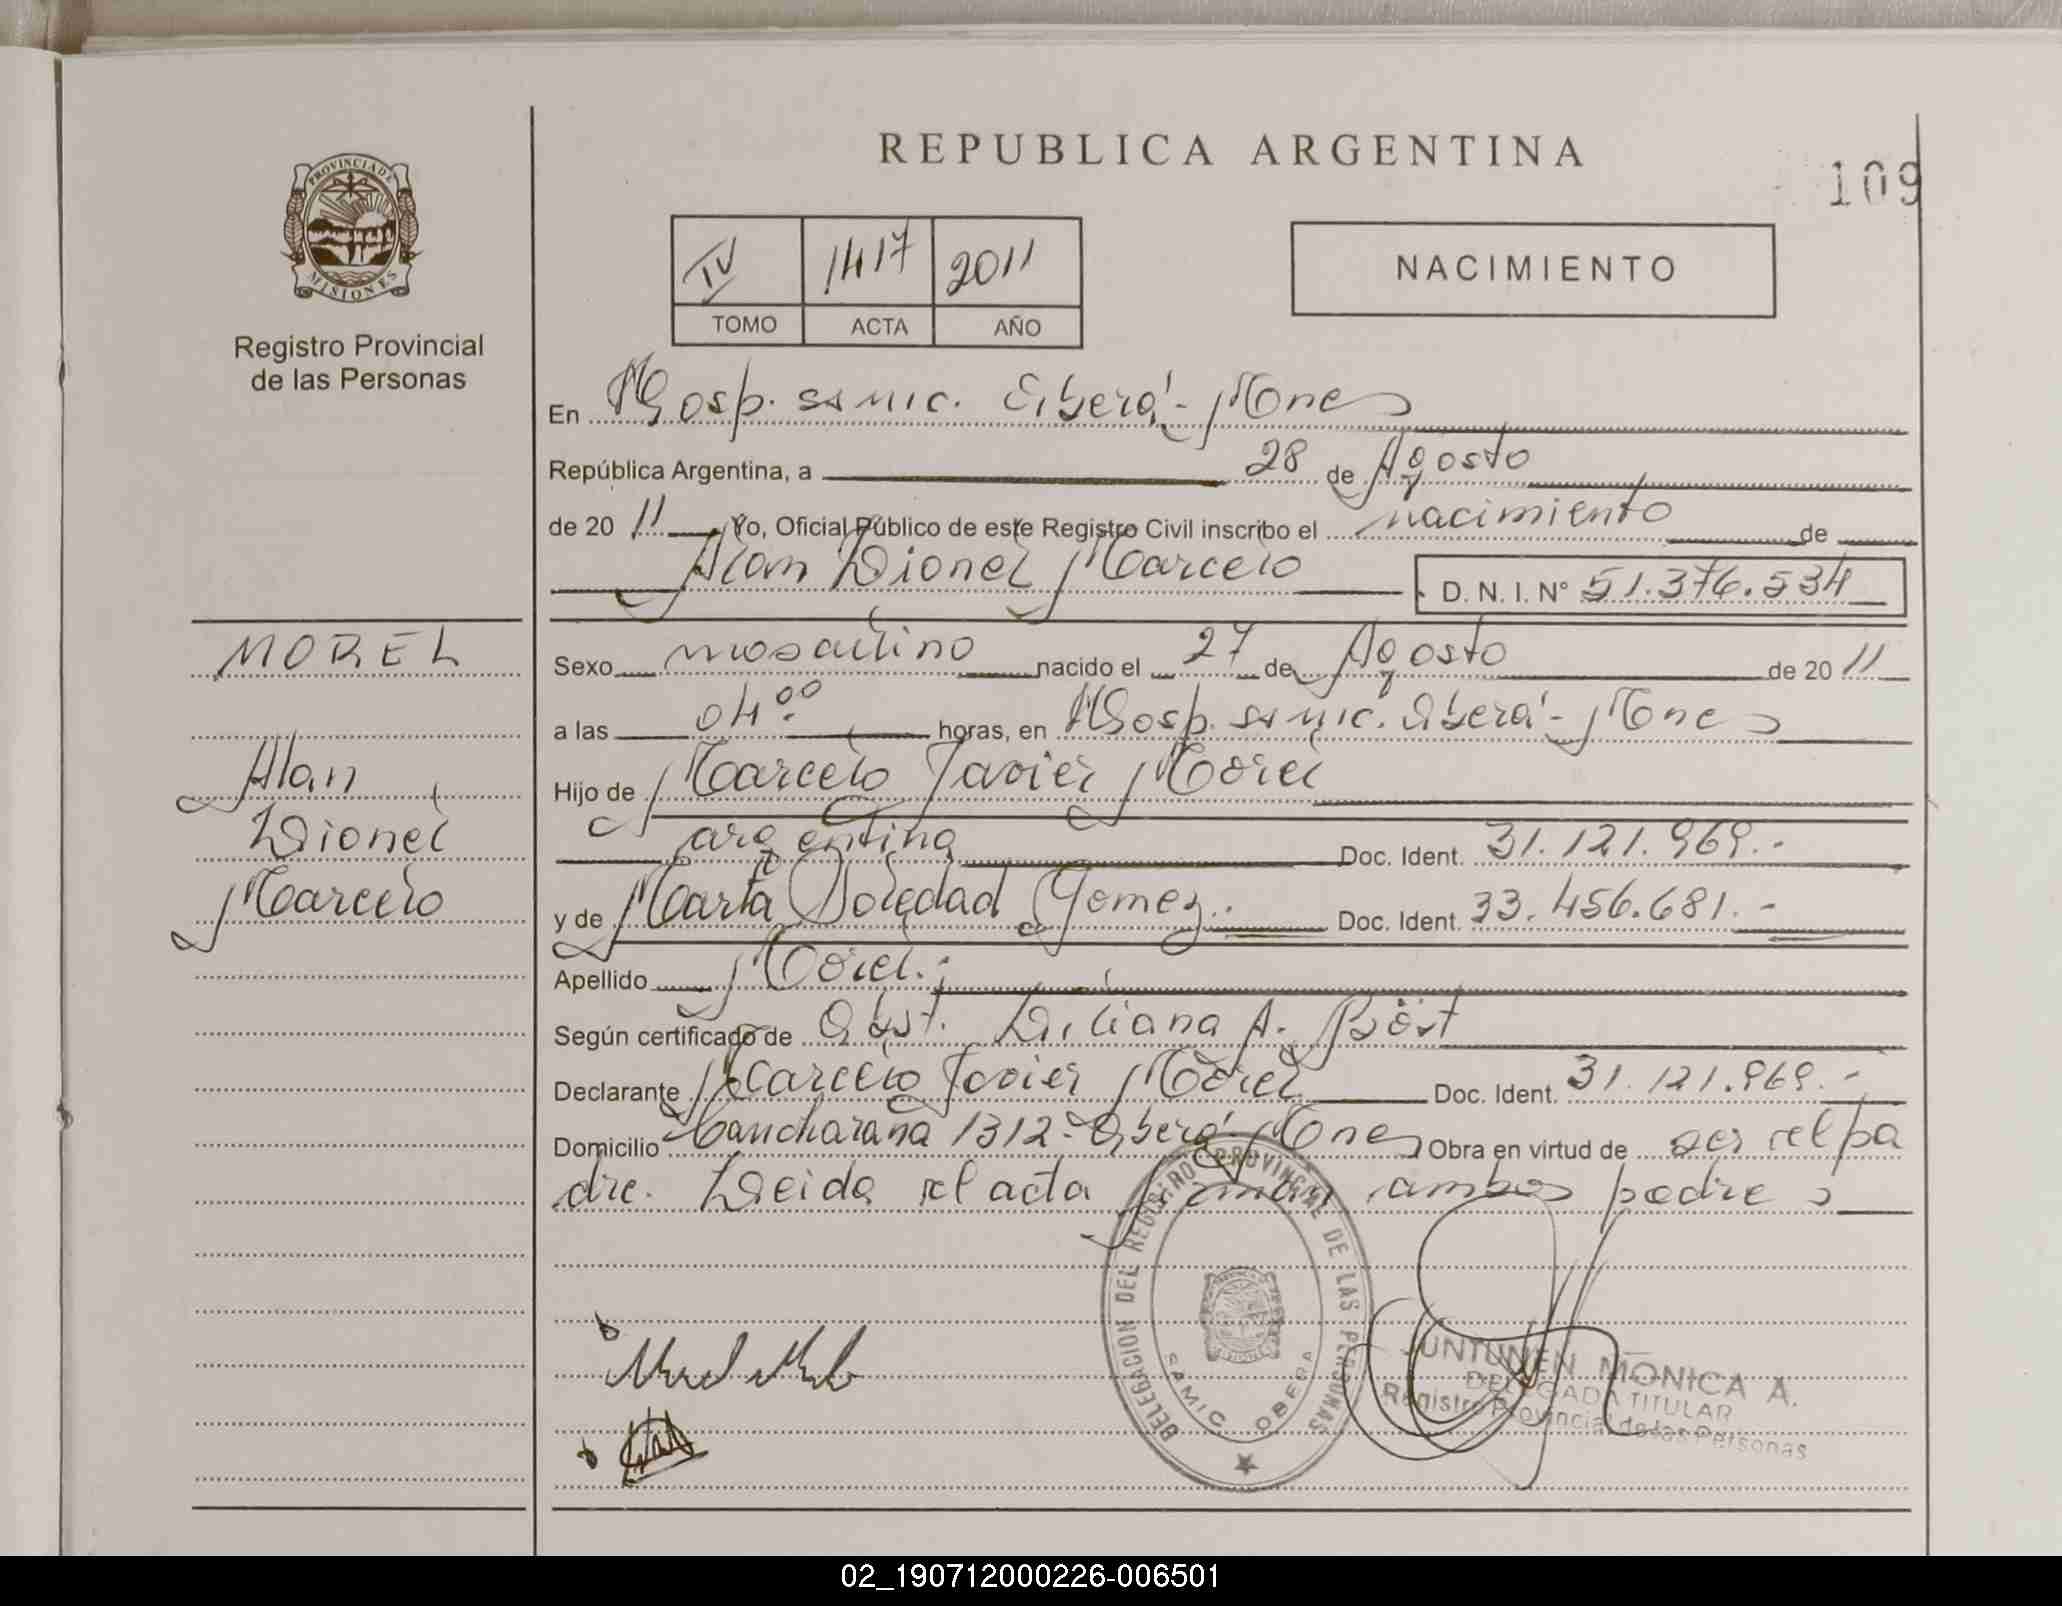 REPUBLICA ARGENTINA
109
PROVINCIA DE
MISIONES
Registro Provincial
de las Personas
IV 1417 2011
TOMO ACTA AÑO
NACIMIENTO
En Hosp. samic. Oberá - Mnes
República Argentina, a 28 de Agosto
de 20 11 Yo, Oficial Público de este Registro Civil inscribo el nacimiento de
Alan Lionel Marcelo
D. N. I. Nº 51.376.534
MOREL
Alan
Lionel
Marcelo
Sexo masculino nacido el 27 de Agosto de 20 11
a las 04:00 horas, en Hosp. samic. Oberá - Mnes
Hijo de Marcelo Javier Morel
argentina Doc. Ident. 31.121.969.-
y de Marta Soledad Gomez.. Doc. Ident. 33.456.681.-
Apellido Morel.;
Según certificado de Obst. Liliana A.
Declarante Marcelo Javier Morel Doc. Ident. 31.121.969.-
Domicilio 1312 - Oberá - Mnes Obra en virtud de ser el pa
dre. Leida el acta firman ambos padres
DELEGACION DEL REGISTRO PROVINCIAL DE LAS PERSONAS
SAMIC OBERA
JUNTUNEN MONICA A.
DELEGADA TITULAR
Registro Provincial de las Personas
02_190712000226-006501